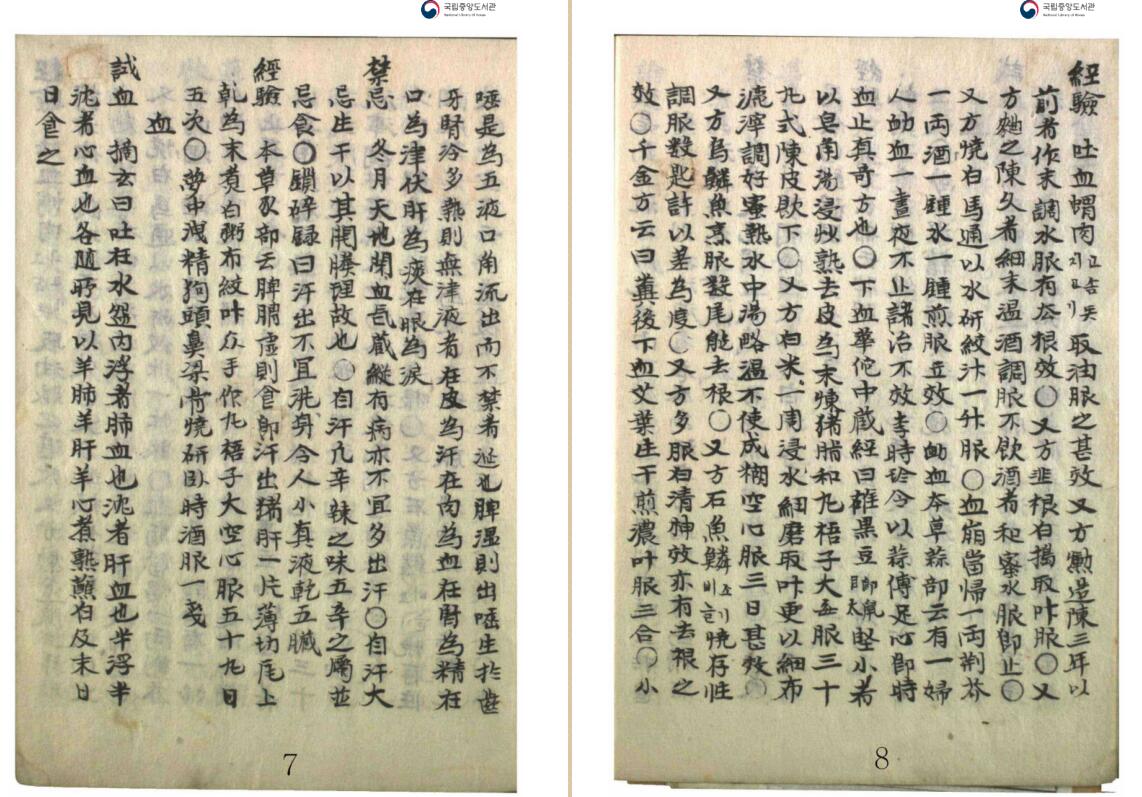 국립중앙도서관
National Library of Korea
唾是為五液口角流出而不禁者涎也脾溫則出唾生於齒
牙腎冷多熱則無津液者在皮為汗在肉為血在腎為精在
口為津伏肝為痰在眼為淚
禁忌 冬月天地閉血氣藏縱有病亦不宜多出汗〇自汗大
忌生干以其開膜理故也〇自汗凡辛辣之味五辛之屬並
忌食〇鎖碎錄曰汗出不宜洗身令人小真液乾五臟
經驗 本草豕部云脾胃虛則食卽汗出猪肝一片薄切尾上
乾為末煮白粥布絞叶衆手作丸梧子大空心服五十九日
五次〇夢中洩精狗頭鼻梁骨燒研臥時酒服一戔
血
試血 摘玄曰吐在水盌內浮者肺血也沈者肝血也半浮半
沈者心血也各隨所見以羊肺羊肝羊心煮熟蘸白及末日
日食之
7
국립중앙도서관
National Library of Korea
經驗 吐血蝟肉 고기 取油服之甚效又方麴造陳三年以
前者作末調水服有去根效〇又方韭根白搗取叶服〇又
方麴之陳久者細末温酒調服不飲酒者和蜜水服卽止〇
又方燒白馬通以水研絞汁一升服〇血崩當歸一両荊芥
一両酒一鍾水一鍾煎服立效〇衄血本草蒜部云有一婦
人衄血一晝夜不止諸治不效李時珍令以蒜傅足心卽時
血止真奇方也〇下血華佗中藏經曰雄黑豆 卽鼠太 堅小者
以皂角湯浸炒熟去皮為末煉猪脂和丸梧子大每服三十
丸式陳皮飲下〇又方白米一周浸水細磨取叶更以細布
漉滓調好蜜熱水中湯略溫不使成糊空心服三日甚效〇
又方烏鱗魚烹服數尾能去根〇又方石魚鱗 燒存性
調服数匙許以差為度〇又方多服白清神效亦有去根之
效〇千金方云曰糞後下血艾葉生干煎濃叶服三合〇小
8